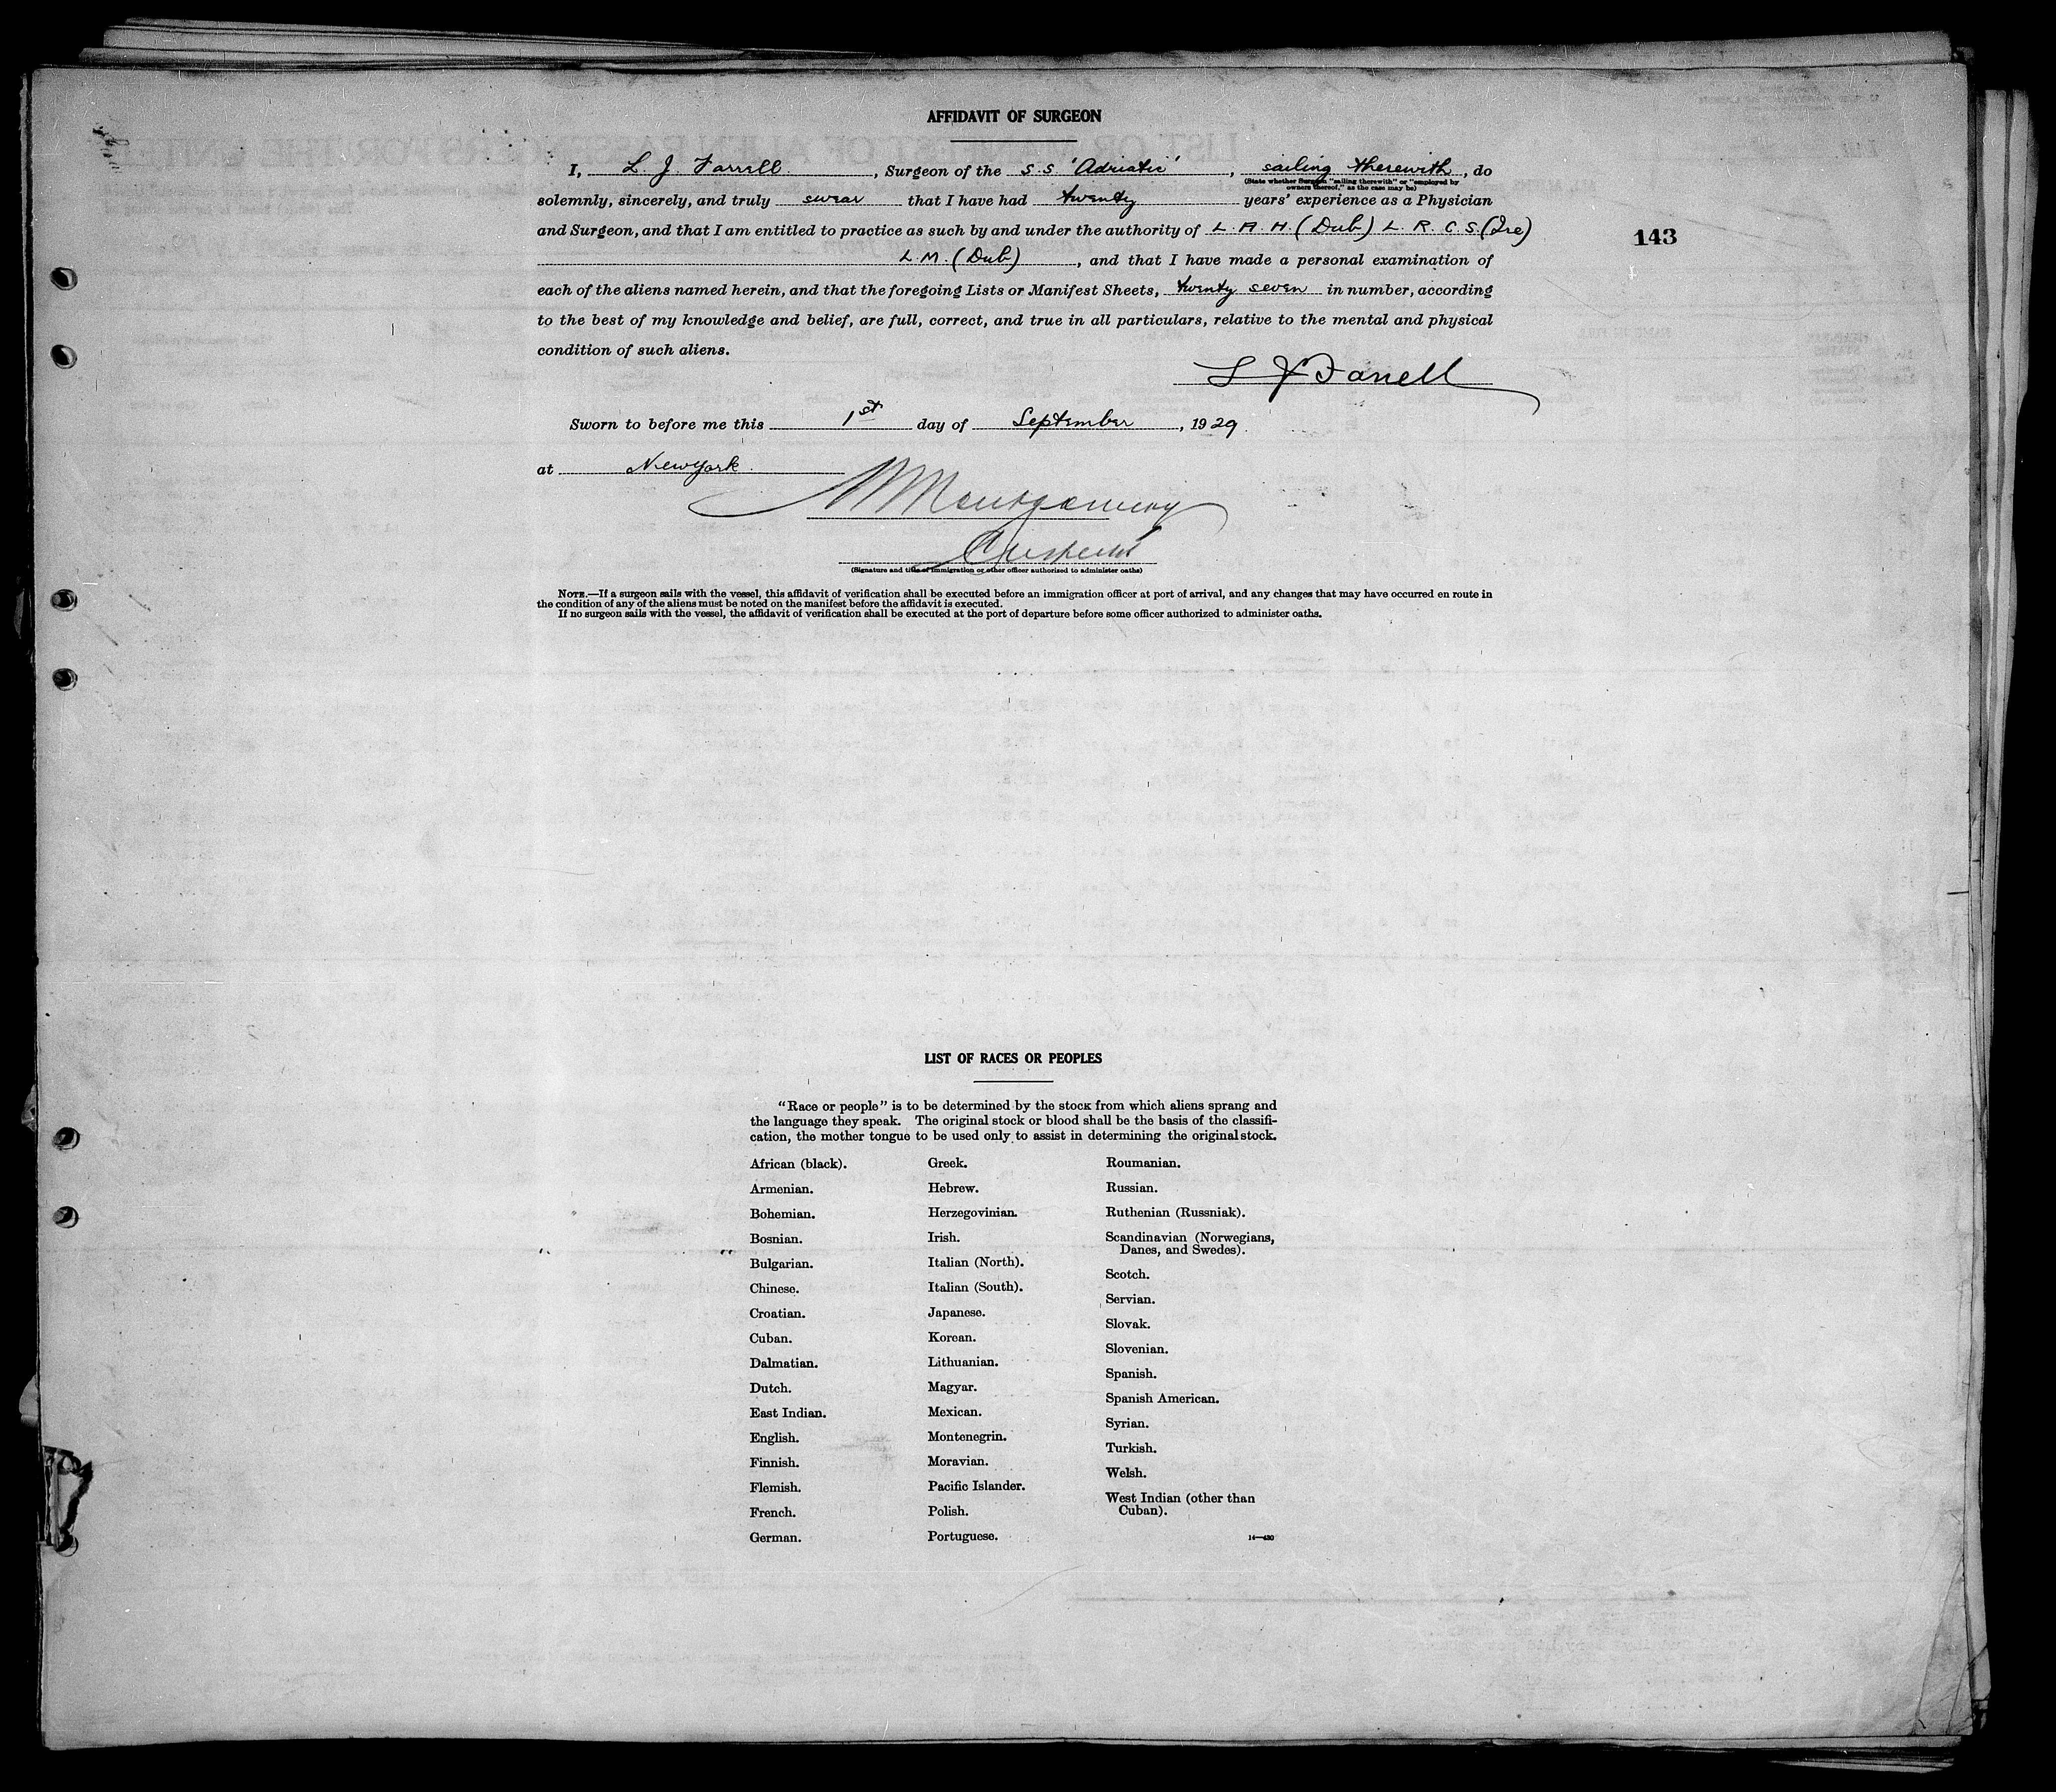 AFFIDAVIT OF SURGEON
I, L. J. Farrell, Surgeon of the S.S 'Adriatic', sailing therewith, do
(State whether Surgeon "sailing therewith" or "employed by
owners thereof," as the case may be)
solemnly, sincerely, and truly swear that I have had twenty years' experience as a Physician
and Surgeon, and that I am entitled to practice as such by and under the authority of L. A. H. (Dub) L. R. C. S. (Ire)
143
L. M. (Dub), and that I have made a personal examination of
each of the aliens named herein, and that the foregoing Lists or Manifest Sheets, twenty seven in number, according
to the best of my knowledge and belief, are full, correct, and true in all particulars, relative to the mental and physical
condition of such aliens.
L J Farrell
Sworn to before me this 1st day of September, 1929.
at New York.
Montgomery
(Signature and title of immigration or other officer authorized to administer oaths)
NOTE.—If a surgeon sails with the vessel, this affidavit of verification shall be executed before an immigration officer at port of arrival, and any changes that may have occurred en route in
the condition of any of the aliens must be noted on the manifest before the affidavit is executed.
If no surgeon sails with the vessel, the affidavit of verification shall be executed at the port of departure before some officer authorized to administer oaths.
LIST OF RACES OR PEOPLES
"Race or people" is to be determined by the stock from which aliens sprang and
the language they speak. The original stock or blood shall be the basis of the classifi-
cation, the mother tongue to be used only to assist in determining the original stock.
African (black).
Armenian.
Bohemian.
Bosnian.
Bulgarian.
Chinese.
Croatian.
Cuban.
Dalmatian.
Dutch.
East Indian.
English.
Finnish.
Flemish.
French.
German.
Greek.
Hebrew.
Herzegovinian.
Irish.
Italian (North).
Italian (South).
Japanese.
Korean.
Lithuanian.
Magyar.
Mexican.
Montenegrin.
Moravian.
Pacific Islander.
Polish.
Portuguese.
Roumanian.
Russian.
Ruthenian (Russniak).
Scandinavian (Norwegians,
Danes, and Swedes).
Scotch.
Servian.
Slovak.
Slovenian.
Spanish.
Spanish American.
Syrian.
Turkish.
Welsh.
West Indian (other than
Cuban).
14—430